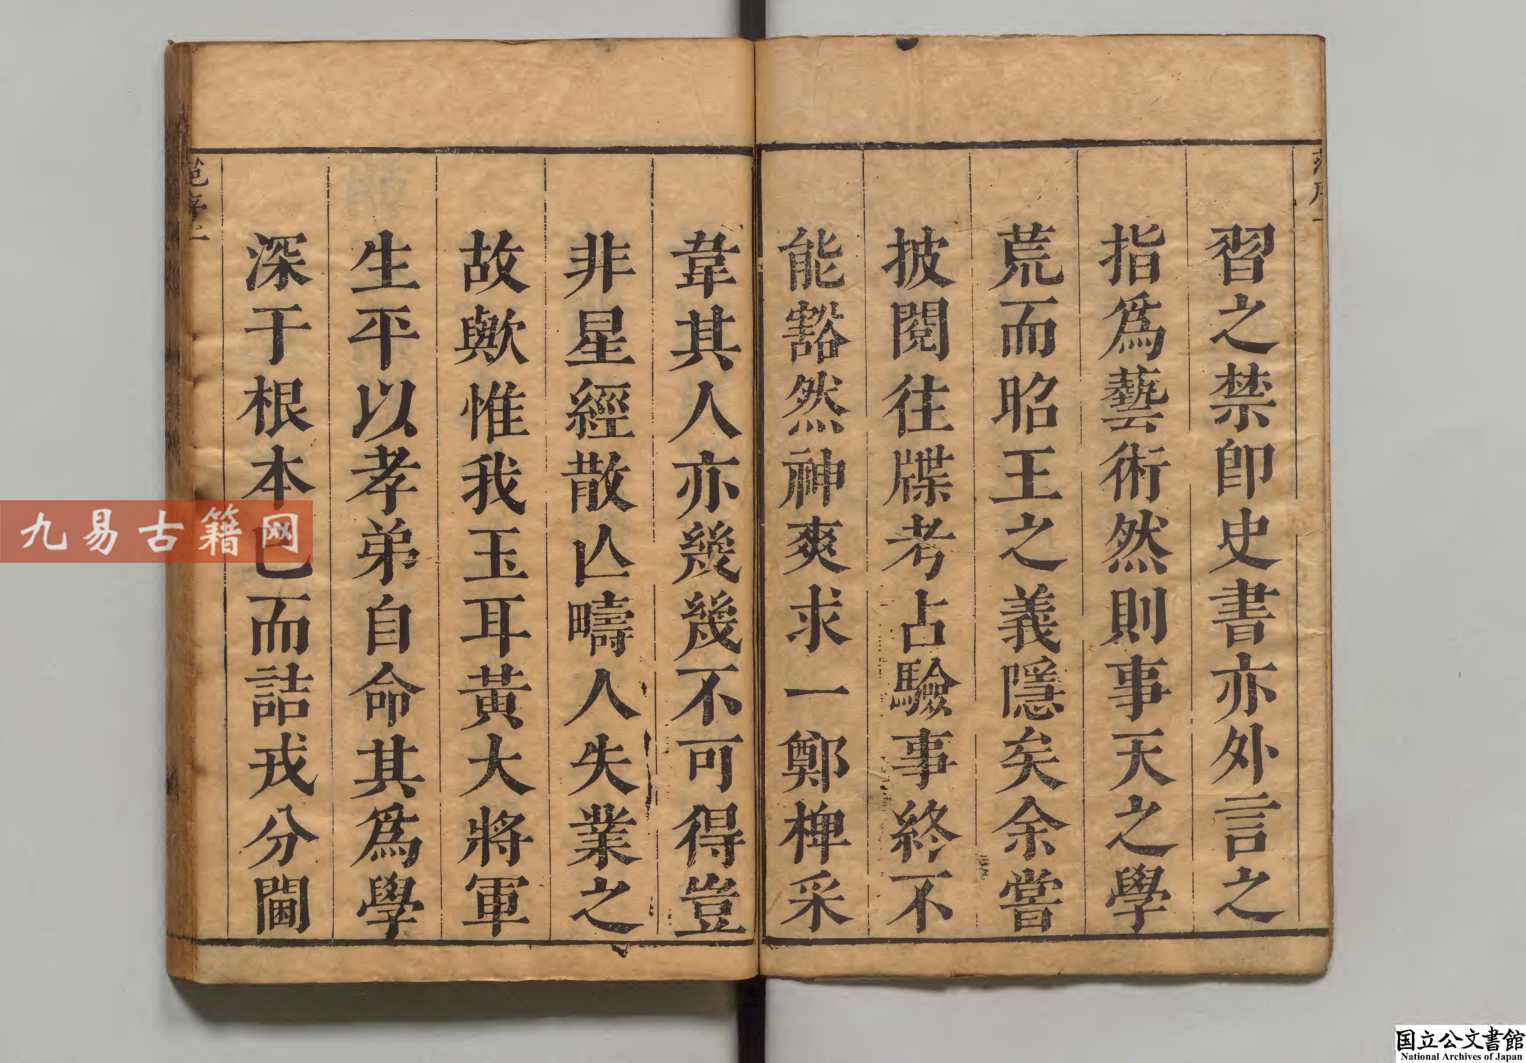 習之禁卽史書亦外言之
指爲藝術然則事天之學
荒而昭王之義隱矣余嘗
披閱往牒考占驗事終不
能豁然神爽求一鄭椑采
韋其人亦幾幾不可得豈
非星經散亾疇人失業之
故歟惟我玉耳黃大將軍
生平以孝弟自命其爲學
深于根本已而詰戎分閫
九易古籍网
国立公文書館
National Archives of Japan